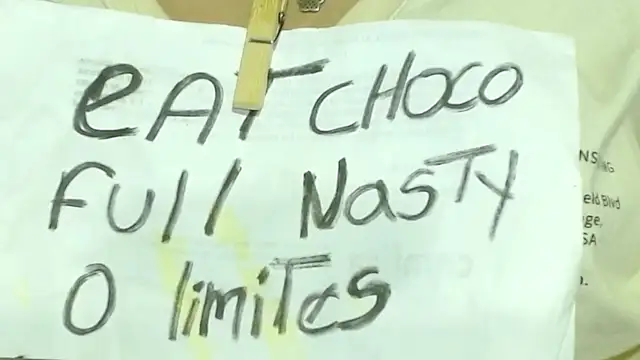 eAT CHOCO
Full NasTy
0 limiTes
NS
eld Blvd
ge,
SA